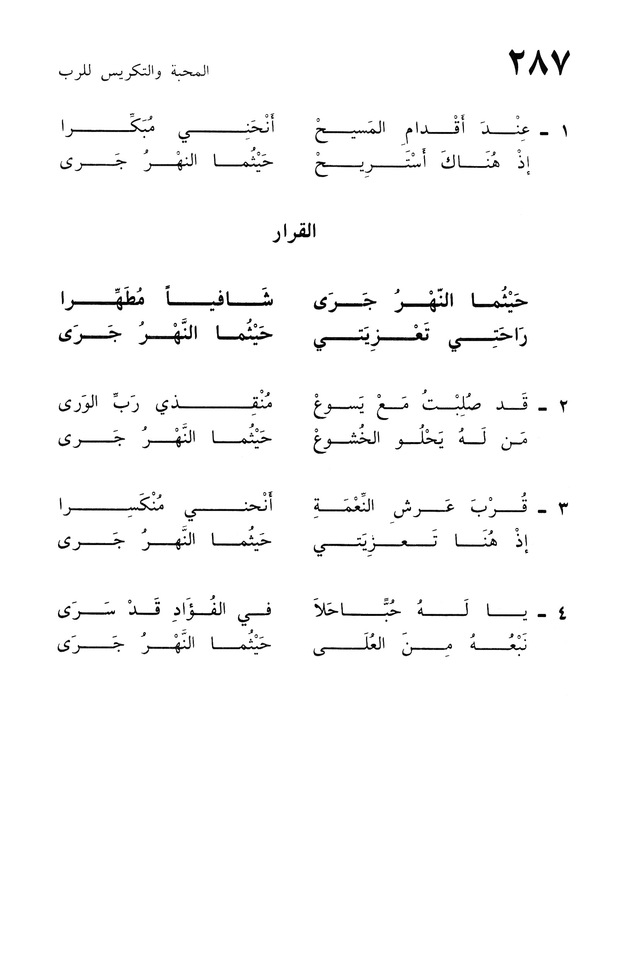 ٢٨٧
المحبة والتكريس للرب
١ - عِنْدَ أَقْدامِ المَسيحْ أَنْحَنِي مُبَكِّرا
إذْ هُنَاكَ أَسْتَرِيحْ حَيْثُما النهْرُ جَرى
القرار
حَيْثُما النّهْرُ جَرَى شَافياً مُطَهِّرا
رَاحَتِي تَعْزِيَتي حَيْثُما النَّهْرُ جَرَى
٢ - قَد صُلِبْتُ مَعْ يَسوعْ مُنْقِذي رَبِّ الوَرى
مَن لَهُ يَحْلُو الخُشوعْ حَيْثُما النَّهْرُ جَرى
٣ - قُرْبَ عَرشِ النِّعْمَةِ أَنْحني مُنْكَسِرا
إذْ هُنَا تَعزِيَتي حَيْثُما النَّهْرُ جَرى
٤ - يا لَهُ حُبًّا حَلاَ في الفُؤَادِ قَدْ سَرَى
نَبْعُهُ مِنَ العُلَى حَيْثُما النَّهْرُ جَرَى